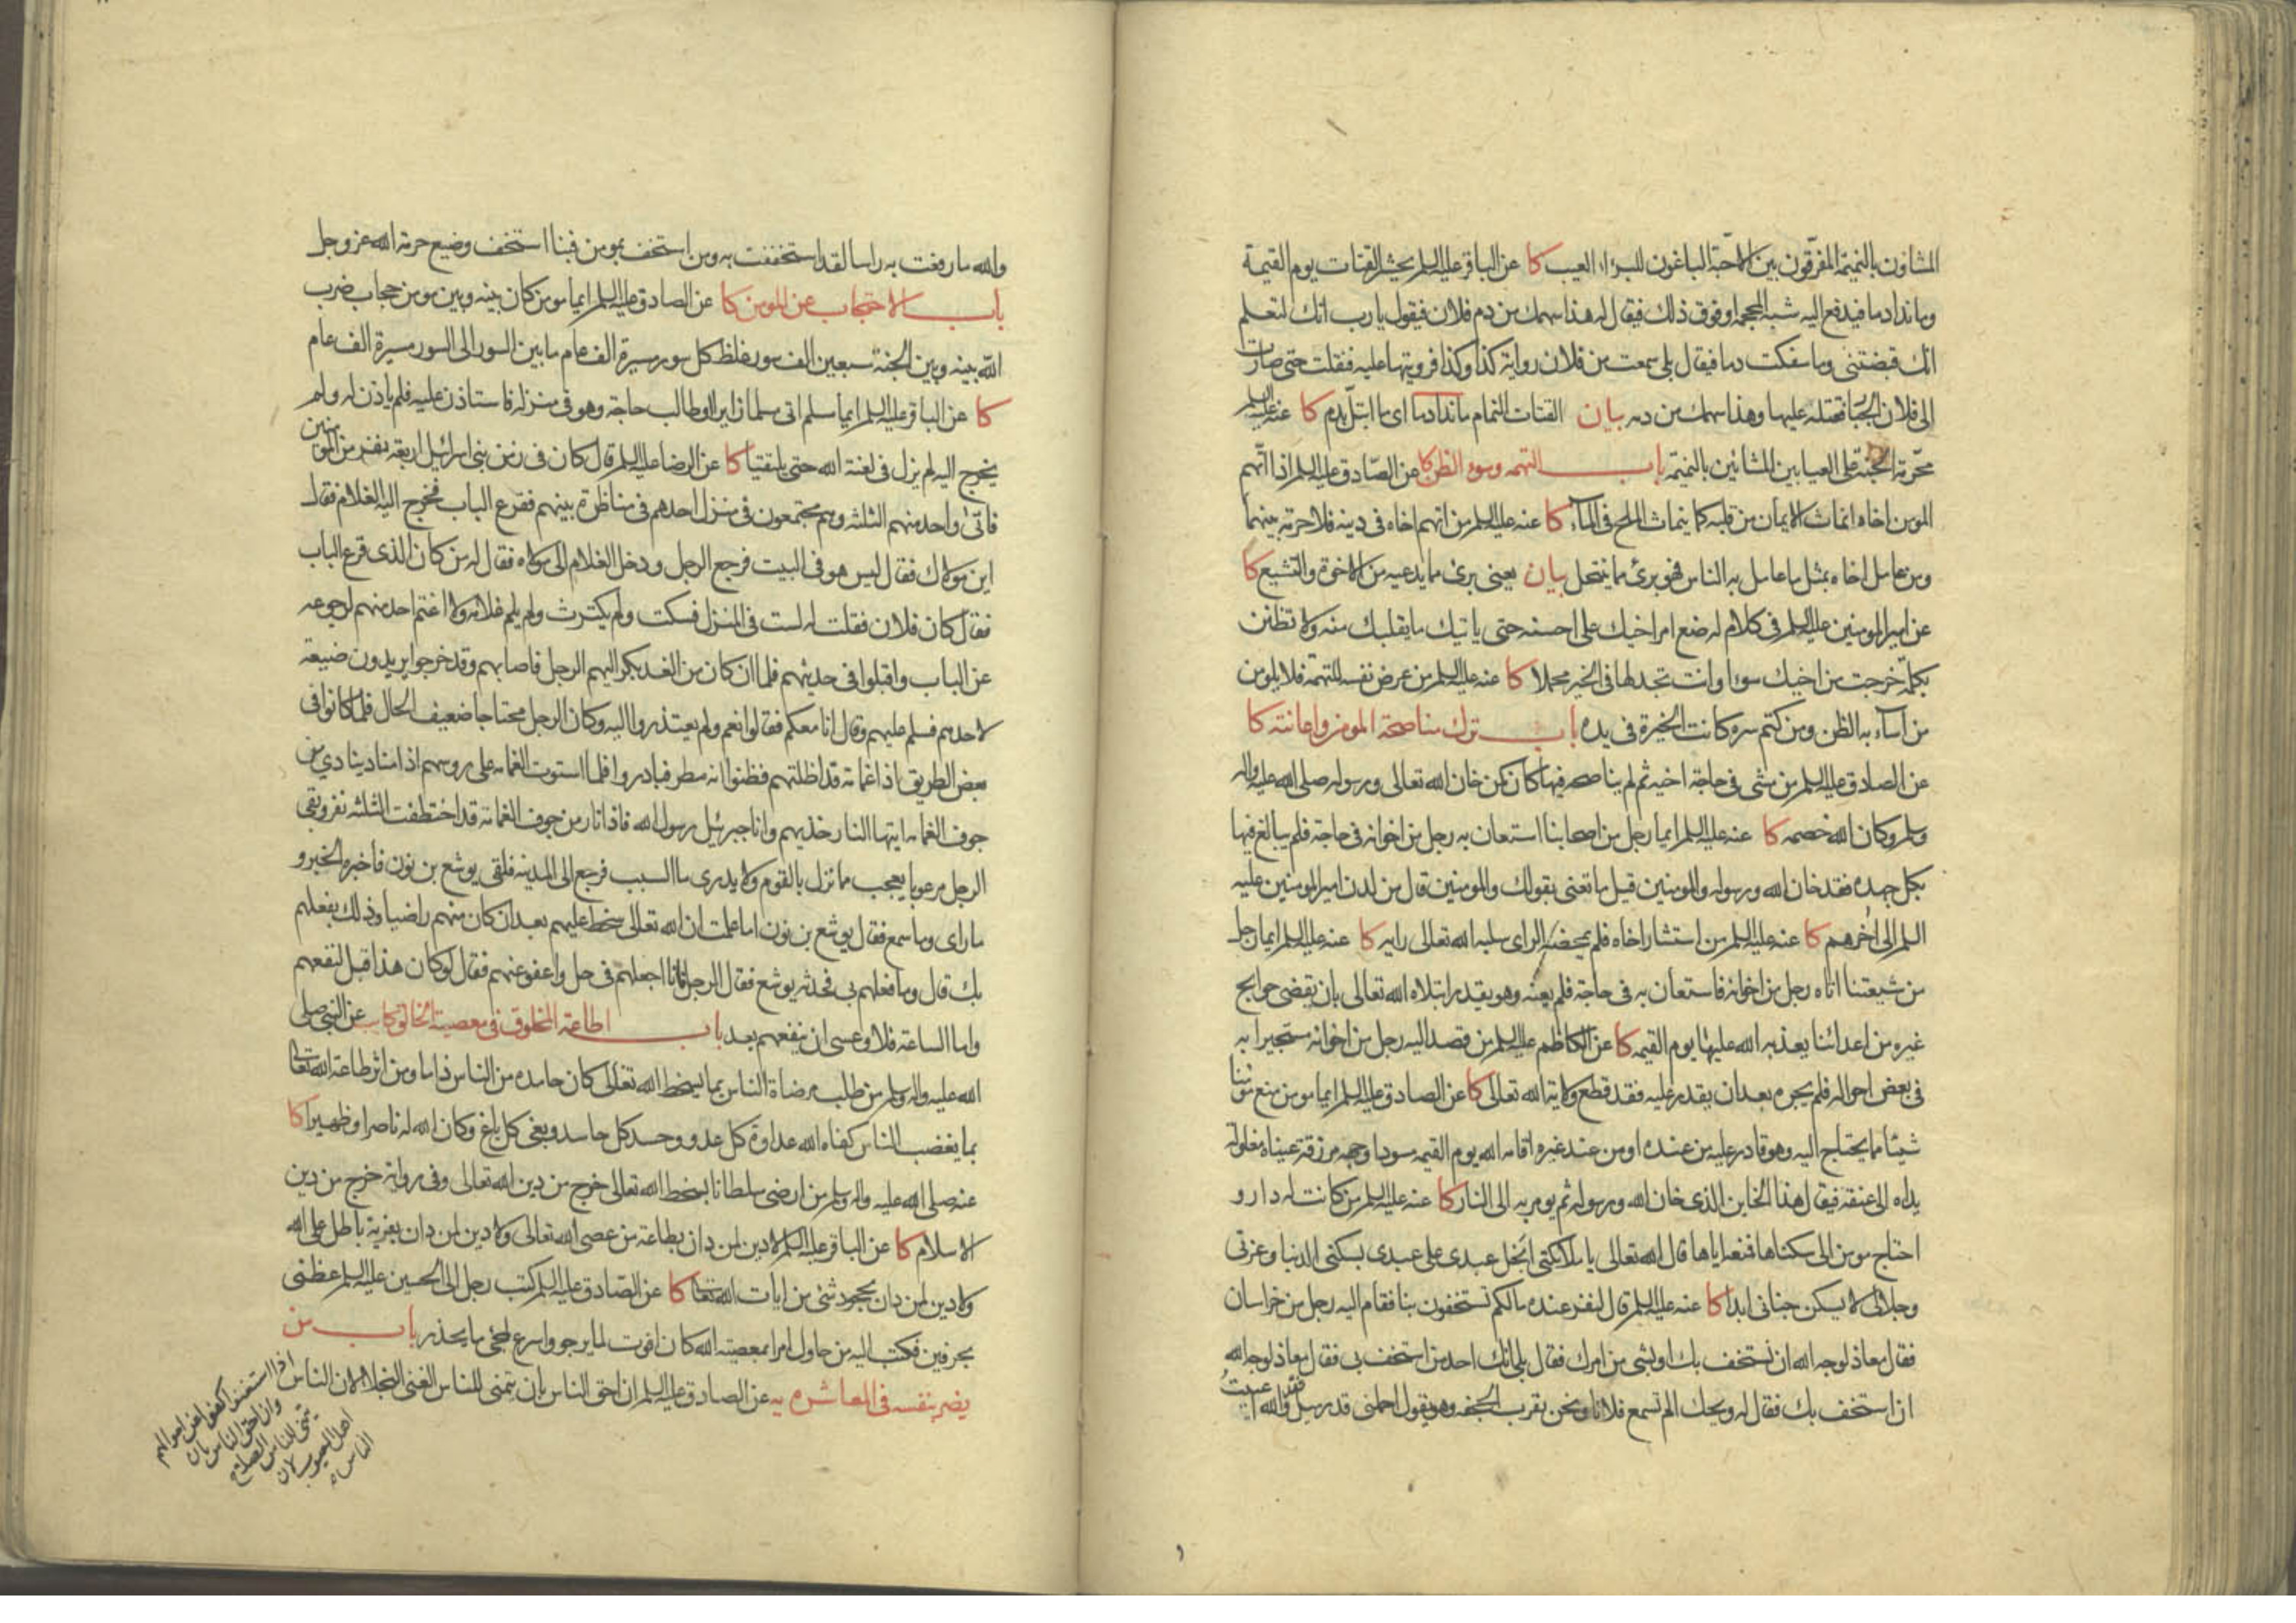 المشاؤن بالنميمة المفرّقون بين الاحبّة الباغون للبرءاء العيب كا عن الباقر عليه السلم يحشر القتات يوم القيمة
وما ندا دما فيدفع اليه شبه المحجمة او فوق ذلك فيقال له هذا سهمك من دم فلان فيقول يا رب انك لتعلم
انك قبضتنى وما سفكت دما فيقال بلى سمعت من فلان رواية كذا وكذا فرويتها عليه فنقلت حتى صارت
الى فلان الجبّار فقتله عليها وهذا سهمك من دمه بيان القتات النمام ما ندا دما اى ما ابتلّ بدم كا عنه عليه السلم
محرّمة الجنّة على العيابين المشائين بالنميمة باب التهمه وسوء الظن كا عن الصّادق عليه السلم اذا اتّهم
المومن اخاه انماث الايمان من قلبه كما ينماث الملح فى المآء كا عنه عليه السلم من اتهم اخاه فى دينه فلا حرمة بينهما
ومن عامل اخاه بمثل ما عامل به الناس فهو برئ مما ينتحل بيان يعنى برئ مما يدعيه من الاخوة والتشيع كا
عن امير المومنين عليه السلم فى كلام له ضع امر اخيك على احسنه حتى ياتيك ما يقلبك منه ولا تظنن
بكلمة خرجت من اخيك سوءا وانت تجد لها فى الخير محملا كا عنه عليه السلم من عرض نفسه للتهمة فلا يلومن
من اسآء به الظن ومن كتم سره كانت الخيرة فى يده باب ترك مناصحة المومن واعانته كا
عن الصادق عليه السلم من مشى فى حاجة اخيه ثم لم يناصحه فيها كان كمن خان الله تعالى ورسوله صلى الله عليه واله
وسلم وكان الله خصمه كا عنه عليه السلم ايما رجل من اصحابنا استعان به رجل من اخوانه فى حاجة فلم يبالغ فيها
بكل جهده فقد خان الله ورسوله والمومنين قيل ما تعنى بقولك والمومنين قال من لدن امير المومنين عليه
السلم الى اخرهم كا عنه عليه السلم من استشار اخاه فلم يمحضه الراى سلبه الله تعالى رايه كا عنه عليه السلم ايما رجل
من شيعتنا اتاه رجل من اخوانه فاستعان به فى حاجة فلم يعنه وهو يقدر ابتلاه الله تعالى بان يقضى حوايج
غيره من اعدائنا يعذبه الله عليها يوم القيمه كا عن الكاظم عليه السلم من قصد اليه رجل من اخوانه مستجيرا به
فى بعض احواله فلم يجره بعد ان يقدر عليه فقد قطع ولاية الله تعالى كا عن الصادق عليه السلم ايما مومن منع مومنا
شيئا مما يحتاج اليه وهو قادر عليه من عنده او من عند غيره اقامه الله يوم القيمه مسودا وجهه مزرقة عيناه مغلولة
يداه الى عنقه فيقال هذا الخاين الذى خان الله ورسوله ثم يومر به الى النار كا عنه عليه السلم من كانت له دار و
احتاج مومن الى سكناها فمنعه اياها قال الله تعالى يا ملائكتى ابخل عبدى على عبدى بسكنى الدنيا وعزتى
وجلالى لا يسكن جنانى ابدا كا عنه عليه السلم قال لنفر عنده ما لكم تستخفون بنا فقام اليه رجل من خراسان
فقال معاذ لوجه الله ان نستخف بك او بشى من امرك فقال بلى انك احد من استخف بى فقال معاذ لوجه الله
ان استخف بك فقال له ويحك الم تسمع فلانا ونحن بقرب الجحفه وهو يقول احملنى قدر ميل فقد والله اعييت
والله ما رفعت به راسا لقد استخففت به ومن استخف بمومن فبنا استخف وضيع حرمة الله عز وجل
باب الاحتجاب عن المومن كا عن الصادق عليه السلم ايما مومن كان بينه وبين مومن حجاب ضرب
الله بينه وبين الجنة سبعين الف سور غلظ كل سور مسيرة الف عام ما بين السور الى السور مسيرة الف عام
كا عن الباقر عليه السلم ايما مسلم اتى مسلما زايرا او طالب حاجة وهو فى منزله فاستاذن عليه فلم ياذن له ولم
يخرج اليه لم يزل فى لعنة الله حتى يلتقيا كا عن الرضا عليه السلم قال كان فى زمن بنى اسرائيل اربعة نفر من المومنين
فاتى واحد منهم الثلثة وهم مجتمعون فى منزل احدهم فى مناظرة بينهم فقرع الباب فخرج اليه الغلام فقال
اين مولاك فقال ليس هو فى البيت فرجع الرجل ودخل الغلام الى مولاه فقال له من كان الذى قرع الباب
فقال كان فلان فقلت له لست فى المنزل فسكت ولم يكترث ولم يلم غلامه ولا اغتم احد منهم لرجوعه
عن الباب واقبلوا فى حديثهم فلما ان كان من الغد بكر اليهم الرجل فاصابهم وقد خرجوا يريدون ضيعة
لاحدهم فسلم عليهم وقال انا معكم فقالوا نعم ولم يعتذروا اليه وكان الرجل محتاجا ضعيف الحال فلما كانوا فى
بعض الطريق اذا غمامة قد اظلتهم فظنوا انه مطر فبادروا فلما استوت الغمامه على روسهم اذا مناد ينادى من
جوف الغمامه ايتها النار خذيهم وانا جبرئيل رسول الله فاذا نار من جوف الغمامة قد اختطفت الثلثه نفر وبقى
الرجل مرعوبا يعجب مما نزل بالقوم ولا يدرى ما السبب فرجع الى المدينه فلقى يوشع بن نون فاخبره الخبر و
ما راى وما سمع فقال يوشع بن نون اما علمت ان الله تعالى سخط عليهم بعد ان كان منهم راضيا وذلك بفعلهم
بك قال وما فعلهم بى فحدثه يوشع فقال الرجل فانا اجعلهم فى حل واعفو عنهم فقال لو كان هذا قبل لنفعهم
واما الساعة فلا وعسى ان ينفعهم بعد باب اطاعة المخلوق فى معصية الخالق كا عن النبى صلى
الله عليه واله وسلم من طلب مرضاة الناس بما يسخط الله تعالى كان حامده من الناس ذاما ومن اثر طاعة الله تعالى
بما يغضب الناس كفاه الله عداوة كل عدو وحسد كل حاسد وبغى كل باغ وكان الله له ناصرا وظهيرا كا
عنه صلى الله عليه واله وسلم من ارضى سلطانا بسخط الله تعالى خرج من دين الله تعالى وفى رواية خرج من دين
الاسلام كا عن الباقر عليه السلم لا دين لمن دان بطاعة من عصى الله تعالى ولا دين لمن دان بفرية باطل على الله
ولا دين لمن دان بجحود شئ من ايات الله تعالى كا عن الصّادق عليه السلم كتب رجل الى الحسين عليه السلم عظنى
بحرفين فكتب اليه من حاول امرا بمعصية الله كان افوت لما يرجو واسرع لمجئ ما يحذر باب من
يضر بنفسه فى المعاشره يه عن الصادق عليه السلم ان احق الناس بان يتمنى للناس الغنى البخلاء لان الناس
اذا استغنوا كفوا عن اموالهم
وان احق الناس بان
يتمنى للناس الصلاح
اهل العيوب لان
الناس